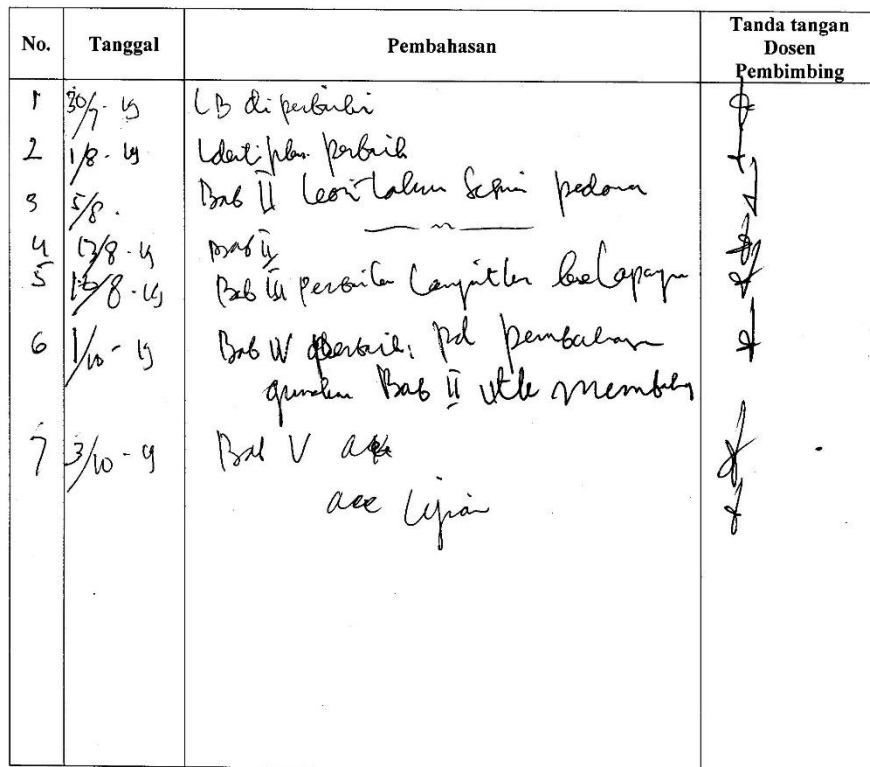 No. Tanggal Pembahasan Tanda tangan Dosen Pembimbing
1 30/7 - 19 LB diperbaiki
2 1/8 - 19 perbaiki
3 5/8. Bab II pedoman
4 13/8 - 19 Bab II
5 /8 - 19 Bab III perbaiki Lanjutkan ke Lapangan
6 1/10 - 19 Bab IV perbaiki pd pembahasan
gunakan Bab II utk membahas
7 3/10 - 19 Bab V acc
acc Ujian